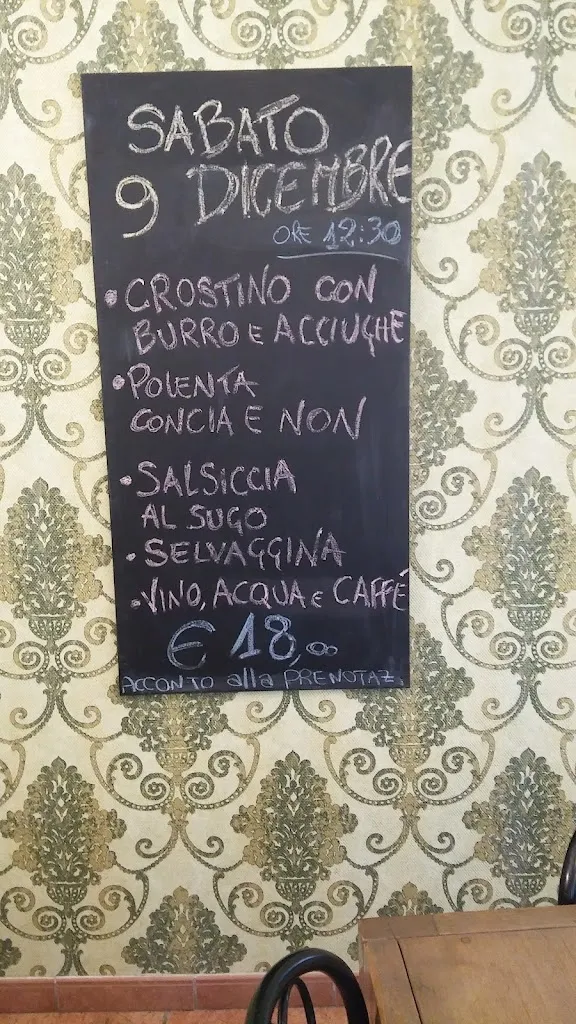 SABATO
9 DICEMBRE
ORE 12:30
• CROSTINO CON
BURRO E ACCIUGHE
• POLENTA
CONCIA E NON
• SALSICCIA
AL SUGO
• SELVAGGINA
• VINO, ACQUA E CAFFÈ
€ 18,00
ACCONTO alla PRENOTAZ.